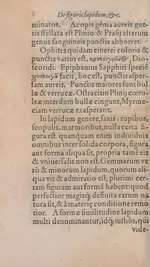 De figuris lapidum, &c.
minatos. At acopis gemma aureis guttis
stellata est Plinio & Prasij alterum
genus sanguineis punctis abhorrens.
Ophites quidem etiam coloris &
punctis varius est,
Epiphanius Sapphiri speciem
facit, hoc est, punctis aureis
aspersam. Puncta maiora sunt bullæ
& verrucæ. Ostracian Plinij cæruleæ
interdum bullæ cingunt, Myrmeciam
verrucæ exasperant.
In lapidum genere, saxis, rupibus,
scopulis, marmoribus, nulla certa figura
est: quanquam enim individuis
omnibus inter solida corpora, figura
aut forma aliqua sit, propria tamen eis
& vniuersalis non est. Gemmarum vero
& minorum lapidum, quorum aliqua
vis & admiratio est, plurimi certam
figuram aut formā habent: quod
perfectior magisq́; definita earum natura
sit, & à maiore conditione remotior.
A forme similitudine lapidum
multi denominantur, adeò iustos, qui
vide-